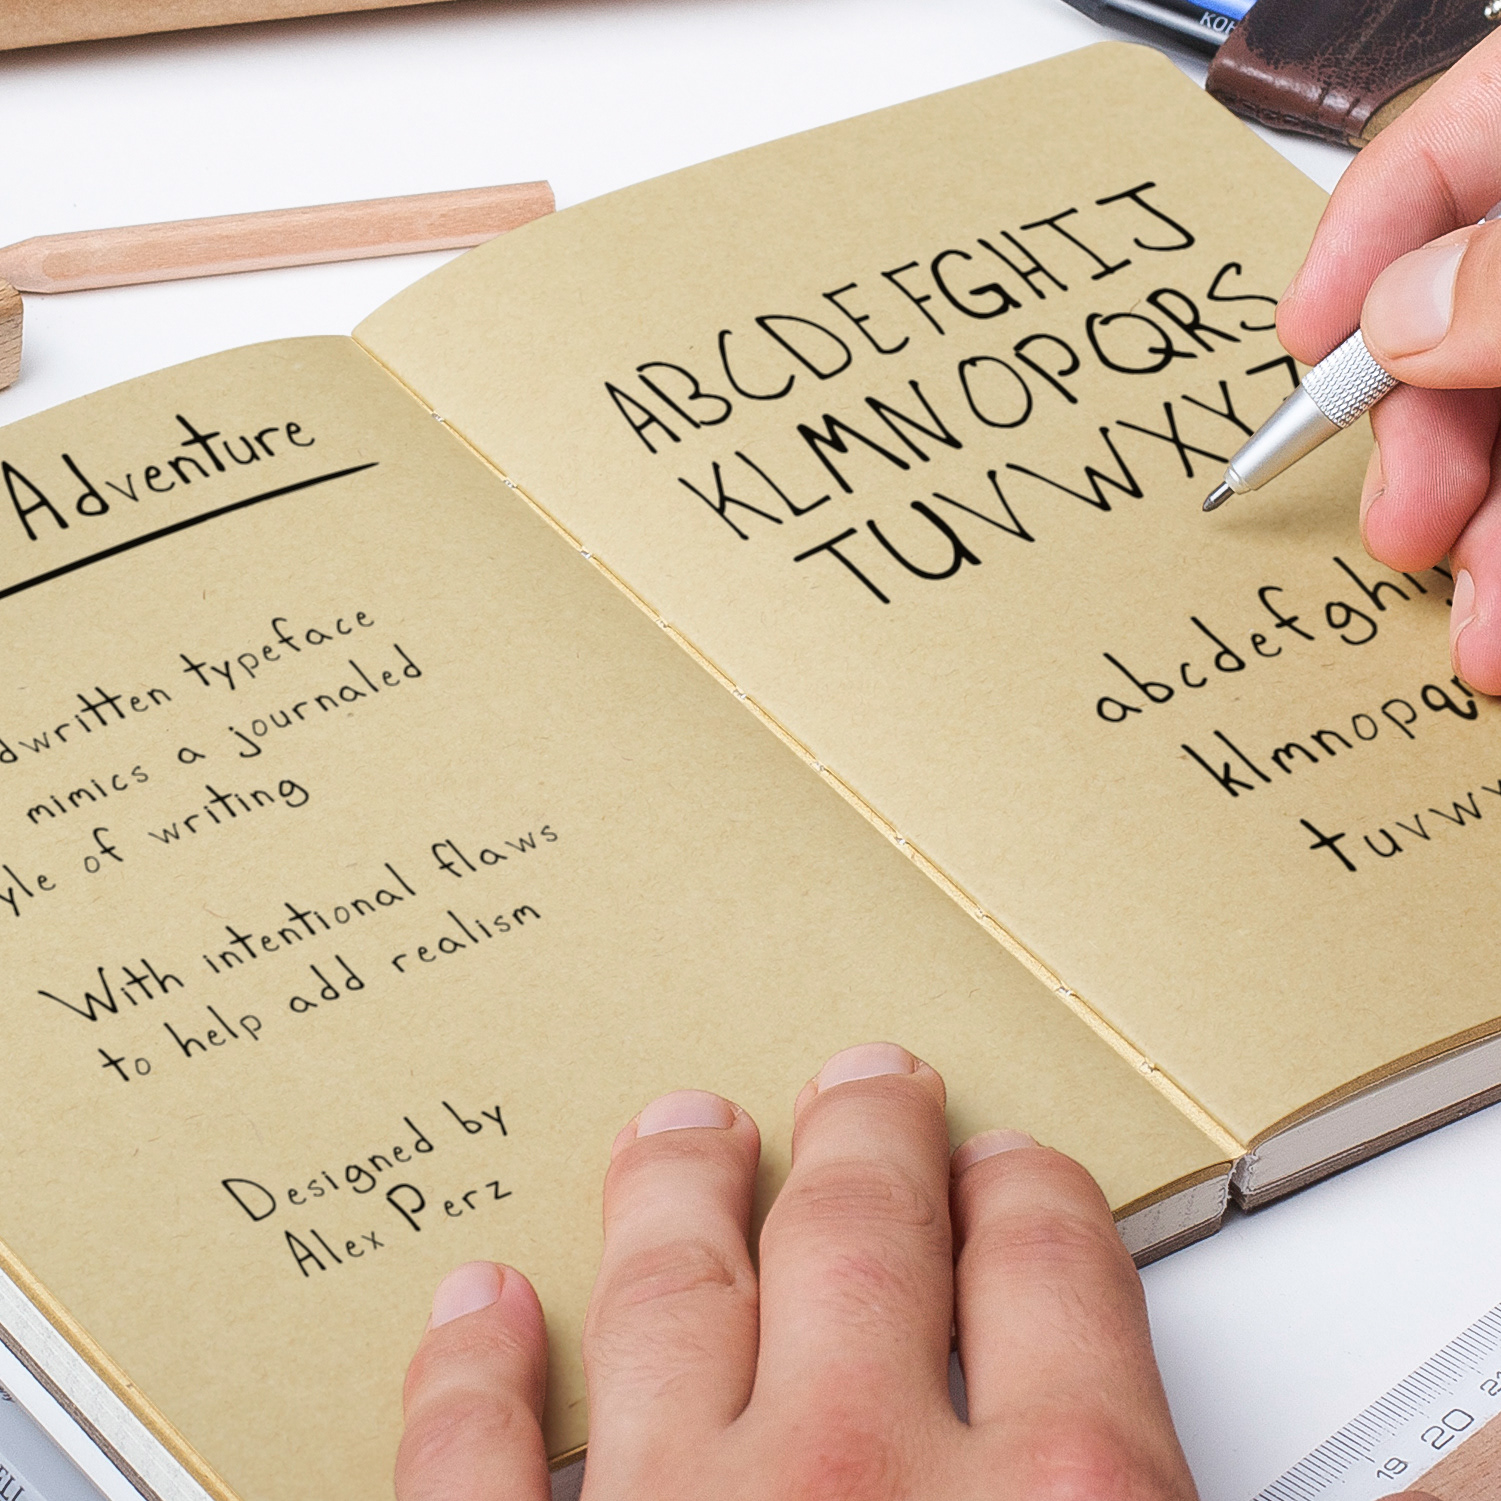 Adventure
typeface
mimics a journaled
of writing
With intentional flaws
to help add realism
Designed by
Alex Perz
ABCDEFGHIJ
KLMNOPQRS
TUVWXYZ
abcdefghij
klmnopqr
tuvwx
19 20